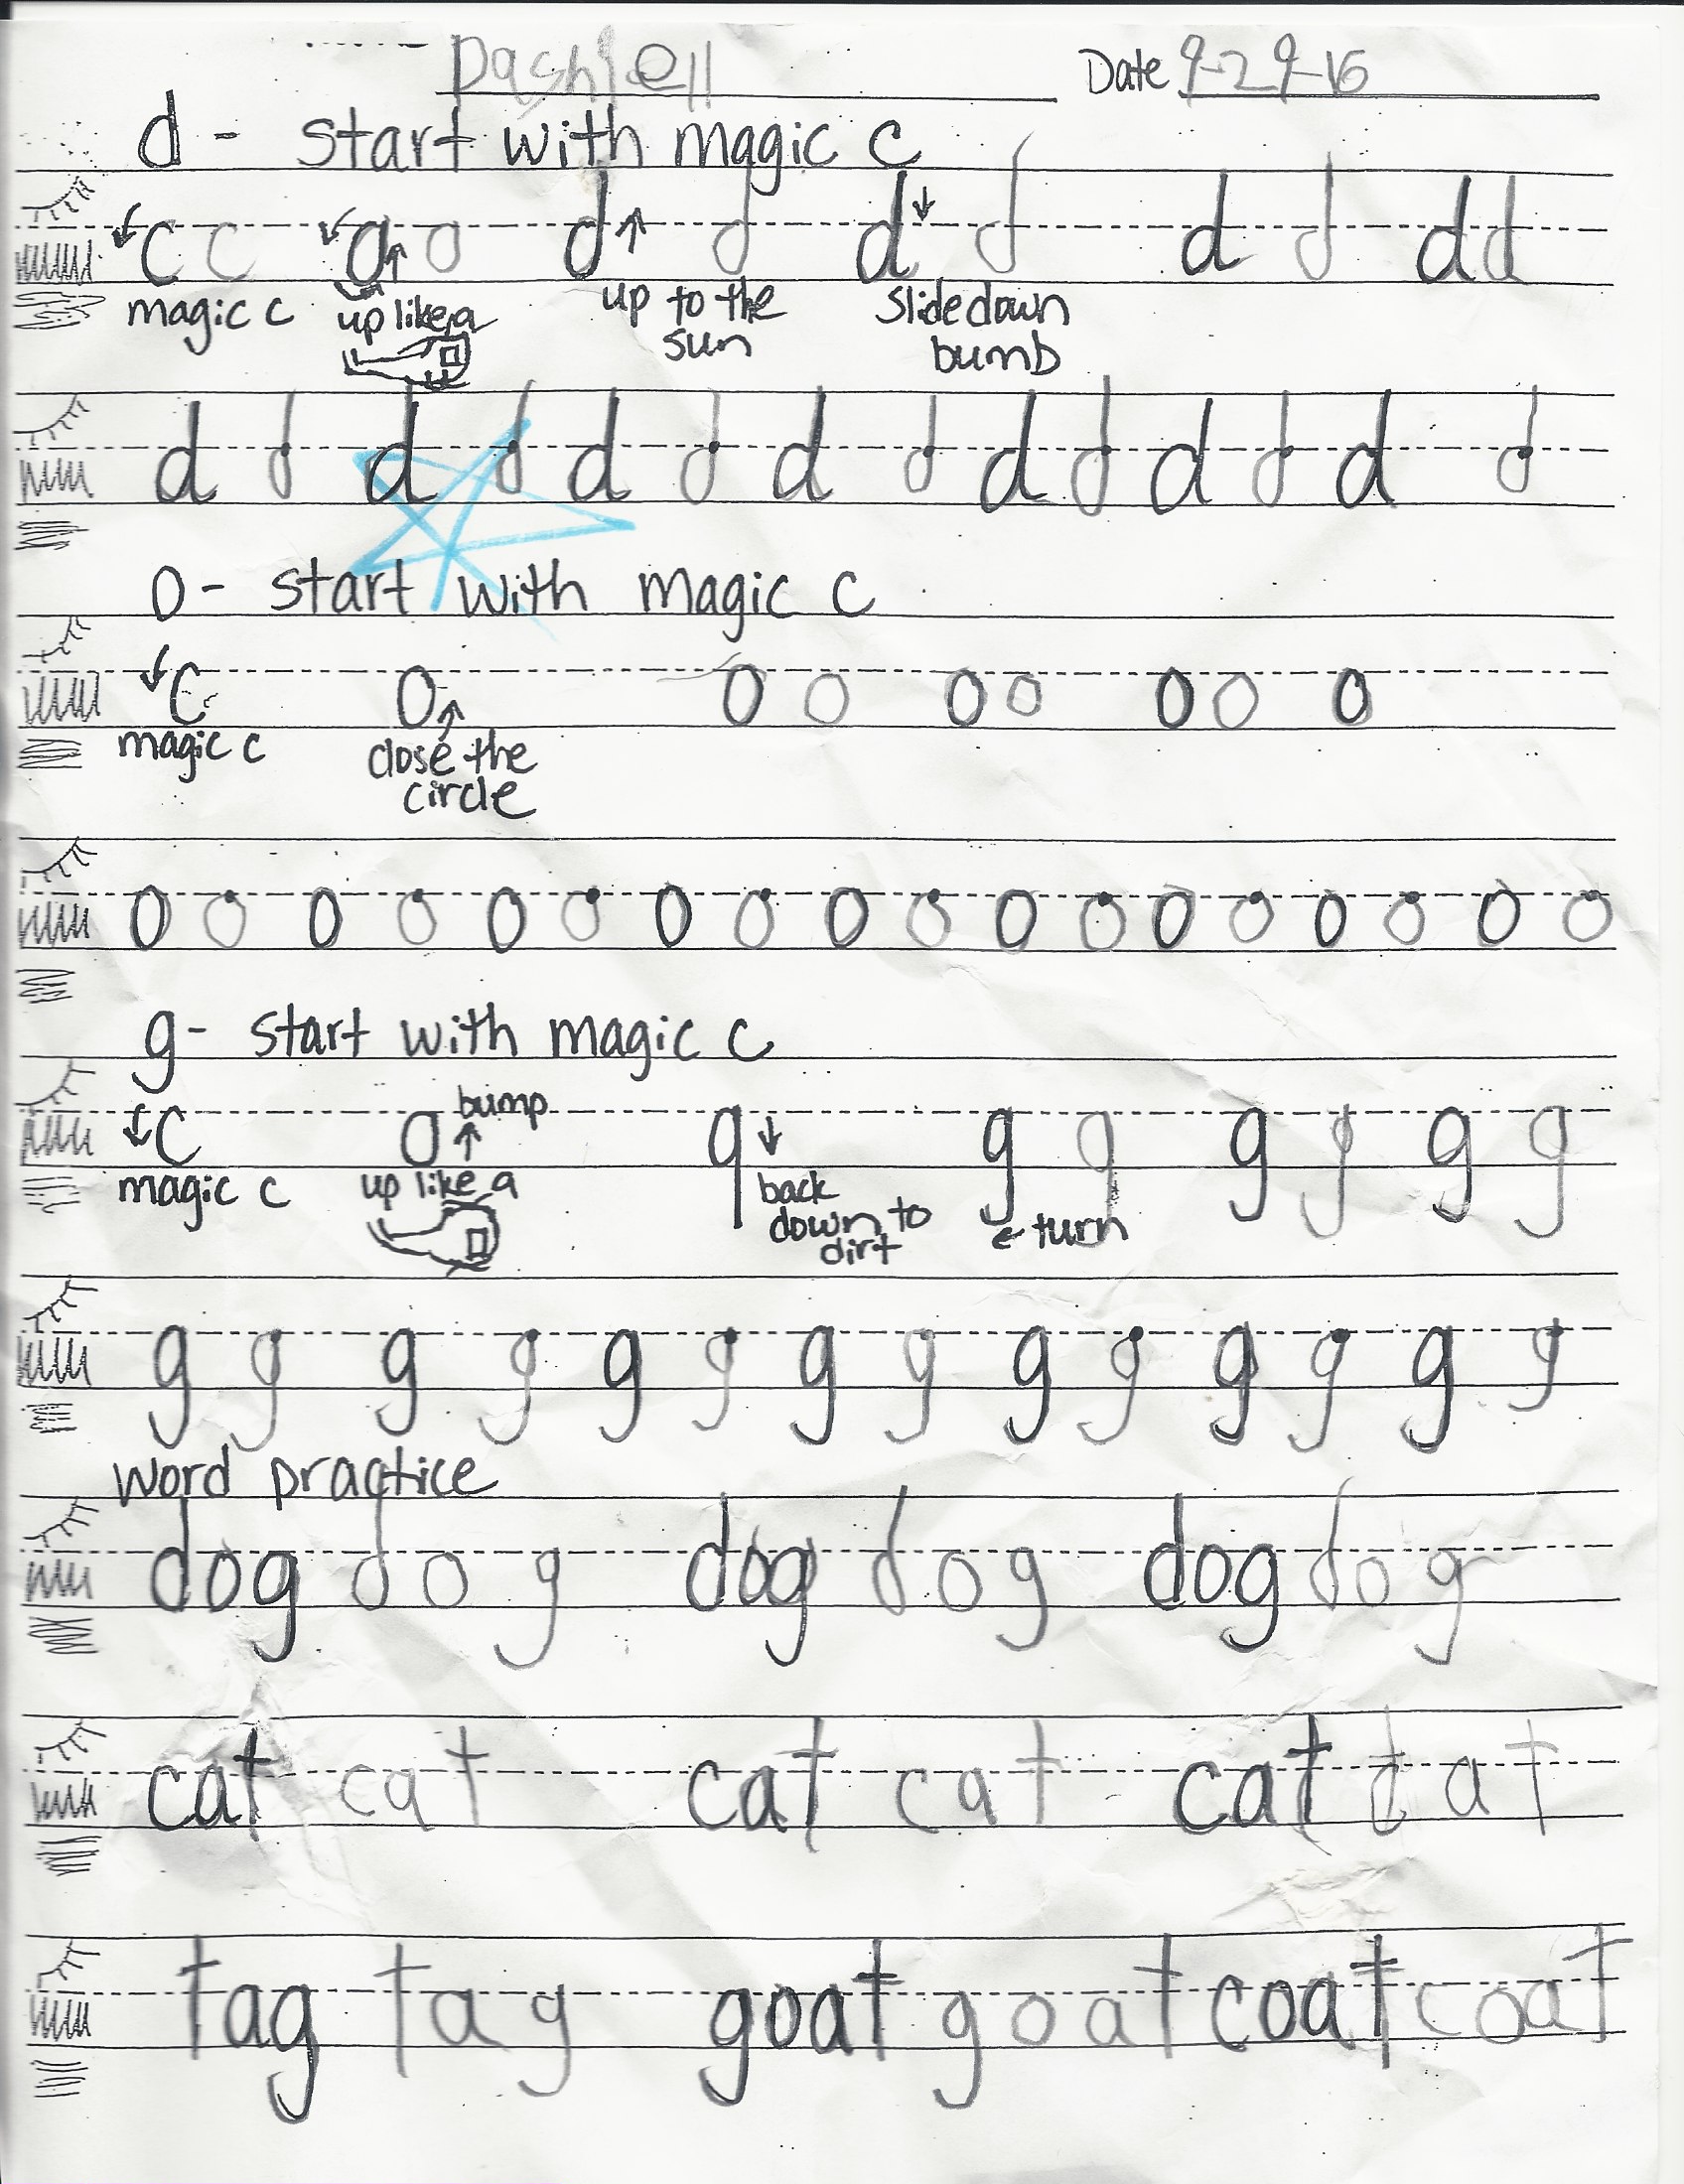 Dashiell Date 9-29-16
d - start with magic c
c c a o d d d d d d d d
magic c up like a up to the slide down
sun bumb
d d d d d d d d d d d d d d
o - start with magic c
c o o o o o o o o
magic c close the
circle
o o o o o o o o o o o o o o o o o o
g - start with magic c
bump
c a q g g g g g g
magic c up like a back
down to turn
dirt
g g g g g g g g g g g g g g
word practice
dog dog dog dog dog dog
cat cat cat cat cat cat
tag tag goat goat coat coat